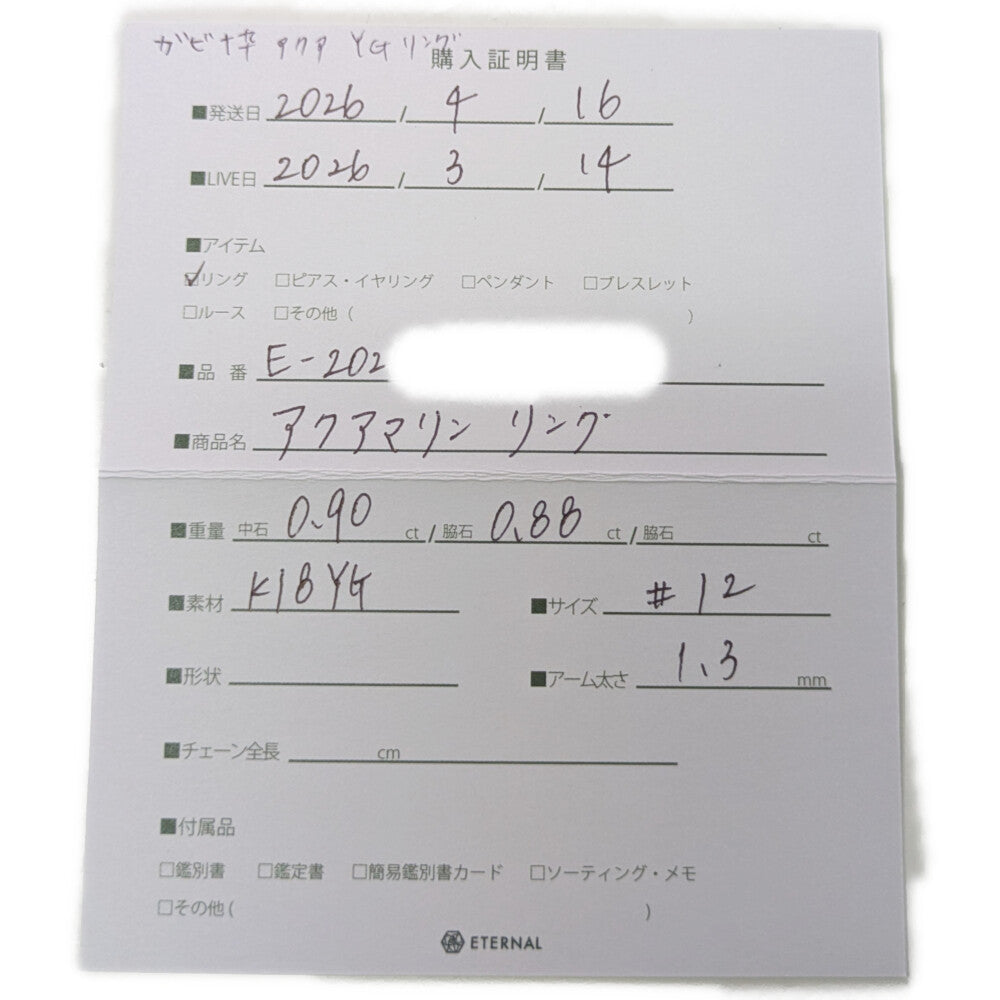 ガビ枠 アクア YGリング
購入証明書
■発送日 2026 / 4 / 16
■LIVE日 2026 / 3 / 14
■アイテム
☑リング □ピアス・イヤリング □ペンダント □ブレスレット
□ルース □その他 ( )
■品 番 E-202
■商品名 アクアマリン リング
■重量 中石 0.90 ct / 脇石 0.88 ct / 脇石 ct
■素材 K18YG ■サイズ #12
■形状 ■アーム太さ 1.3 mm
■チェーン全長 cm
■付属品
□鑑別書 □鑑定書 □簡易鑑別書カード □ソーティング・メモ
□その他 ( )
ETERNAL